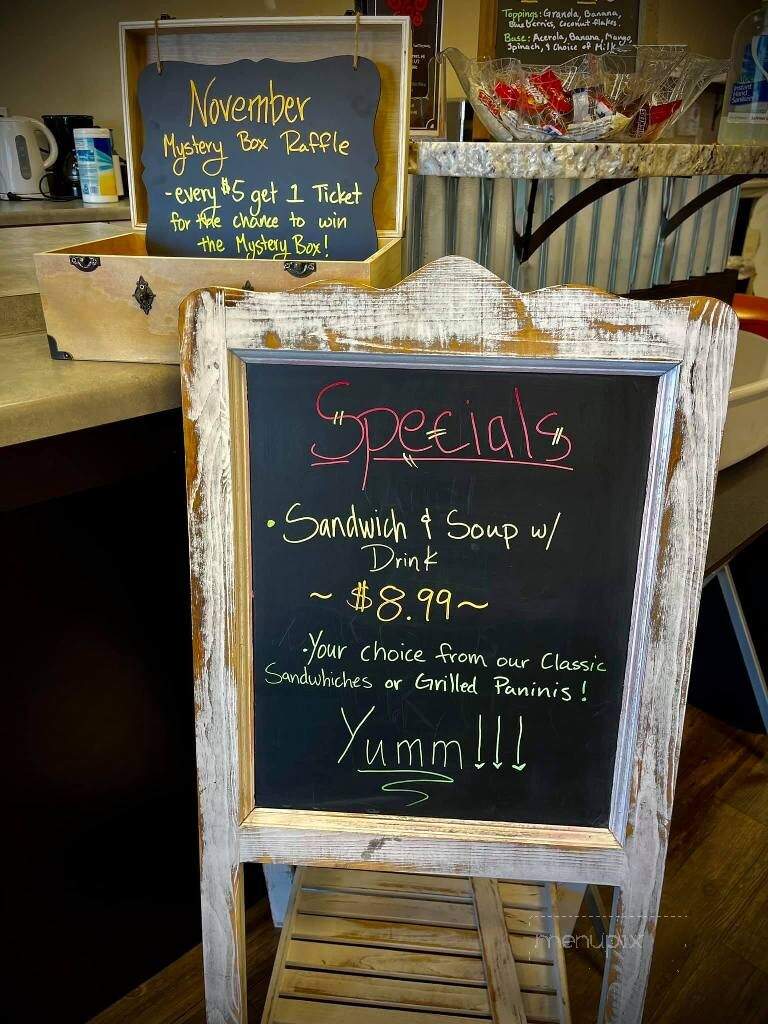 Toppings: Granola, Banana,
Blueberries, Coconut flakes.
Base: Acerola, Banana, Mango,
Spinach, & Choice of Milk
Instant
Hand
Sanitizer
November
Mystery Box Raffle
-every $5 get 1 Ticket
for the chance to win
the Mystery Box!
Specials
• Sandwich & Soup w/
Drink
~ $8.99 ~
• Your choice from our Classic
Sandwhiches or Grilled Paninis!
Yumm!!!
menupix